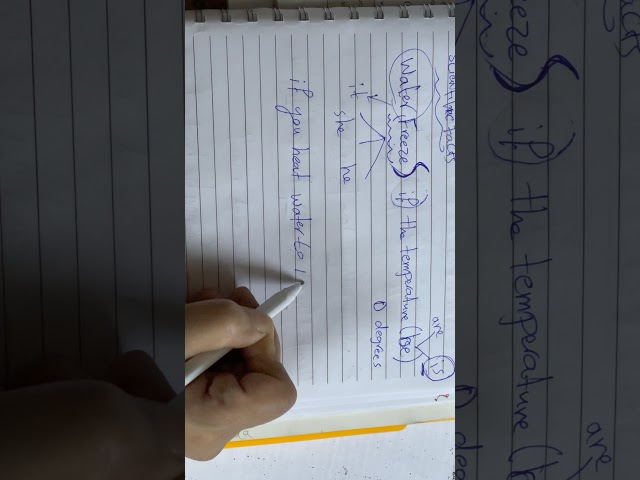 scientific facts
Water (freeze)s if the temperature (be) is
are
0 degrees
it she he
if you heat water to 1